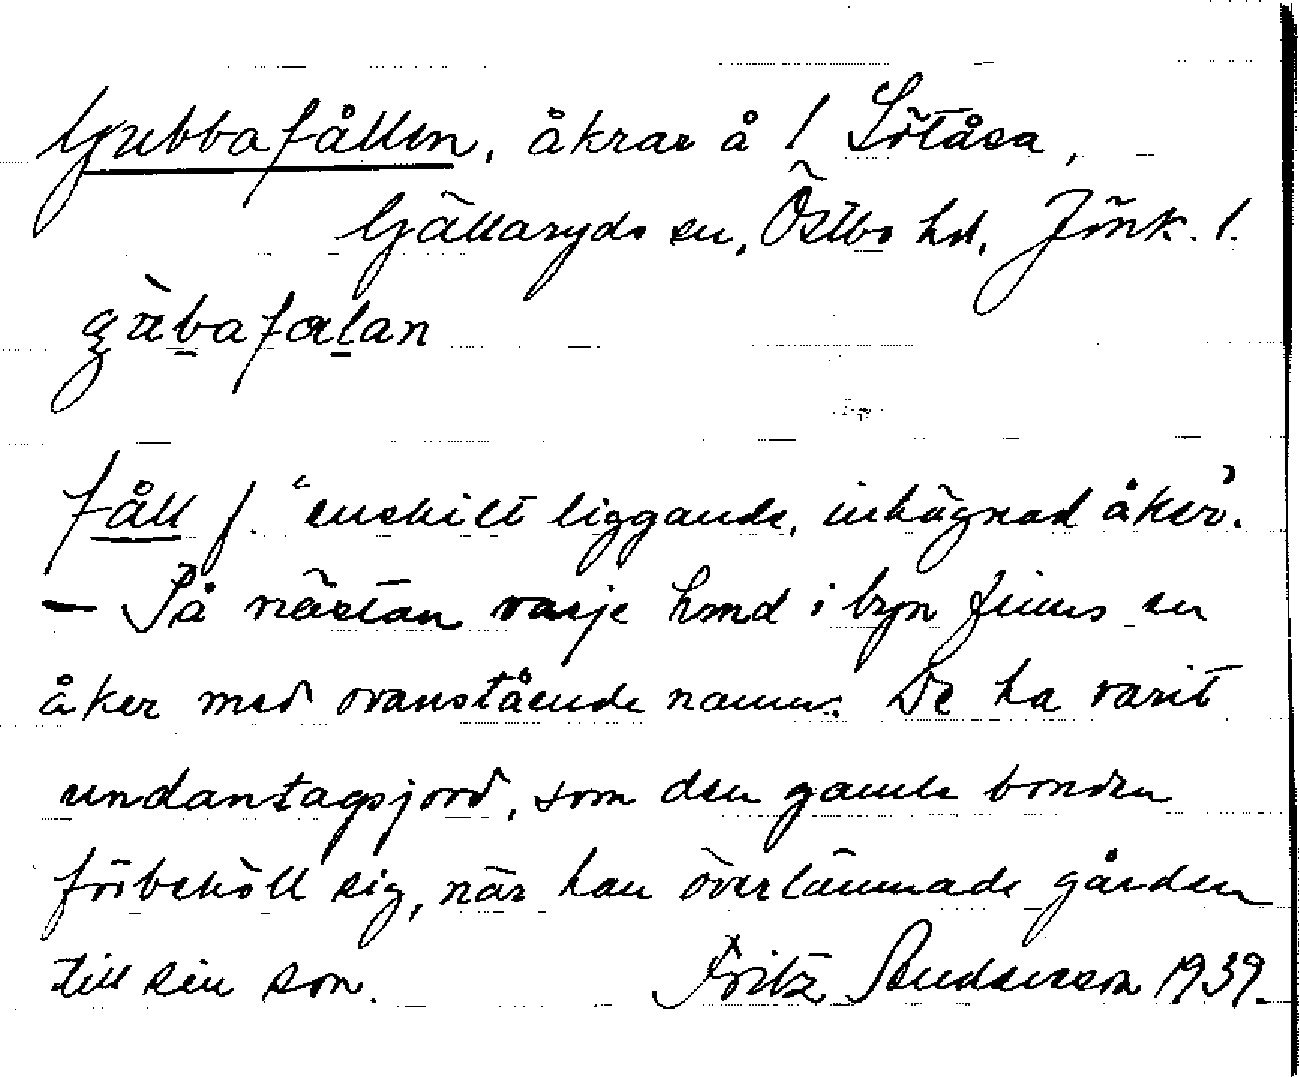 Gubbafållen, åkrar å 1 Sötåsa,
Gällaryds sn, Östbo hd, Jönk. l.
gubafalan
fåll f. "enskilt liggande, inhägnad åker".
— På nästan varje hmd i byn finns en
åker med ovanstående namn. De ha varit
undantagsjord, som den gamle bonden
förbehöll sig, när han överlämnade gården
till sin son. Fritz Andersson 1939.